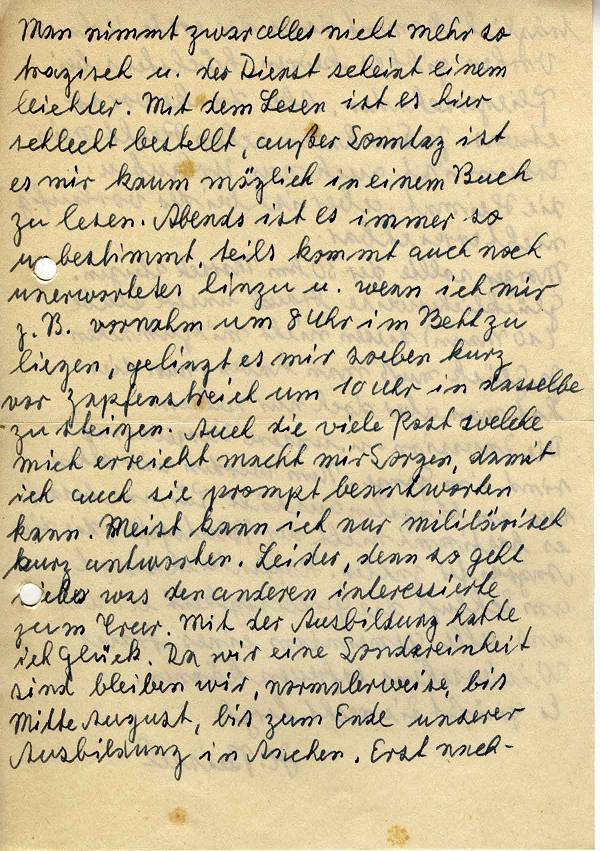 Man nimmt zwar alles nicht mehr so
tragisch u. der Dienst scheint einem
leichter. Mit dem Lesen ist es hier
schlecht bestellt, außer Sonntag ist
es mir kaum möglich in einem Buch
zu lesen. Abends ist es immer so
unbestimmt, teils kommt auch noch
unerwartetes hinzu u. wenn ich mir
z. B. vornahm um 8 Uhr im Bett zu
liegen, gelingt es mir soeben kurz
vor Zapfenstreich um 10 Uhr in dasselbe
zu steigen. Auch die viele Post welche
mich erreicht macht mir Sorgen, damit
ich auch sie prompt beantworten
kann. Meist kann ich nur militärisch
kurz antworten. Leider, denn so geht
vieles was den anderen interessierte
zum. Mit der Ausbildung hatte
ich Glück. Da wir eine Sondereinheit
sind bleiben wir, normalerweise, bis
Mitte August, bis zum Ende unserer
Ausbildung in Aachen. Erst nach-